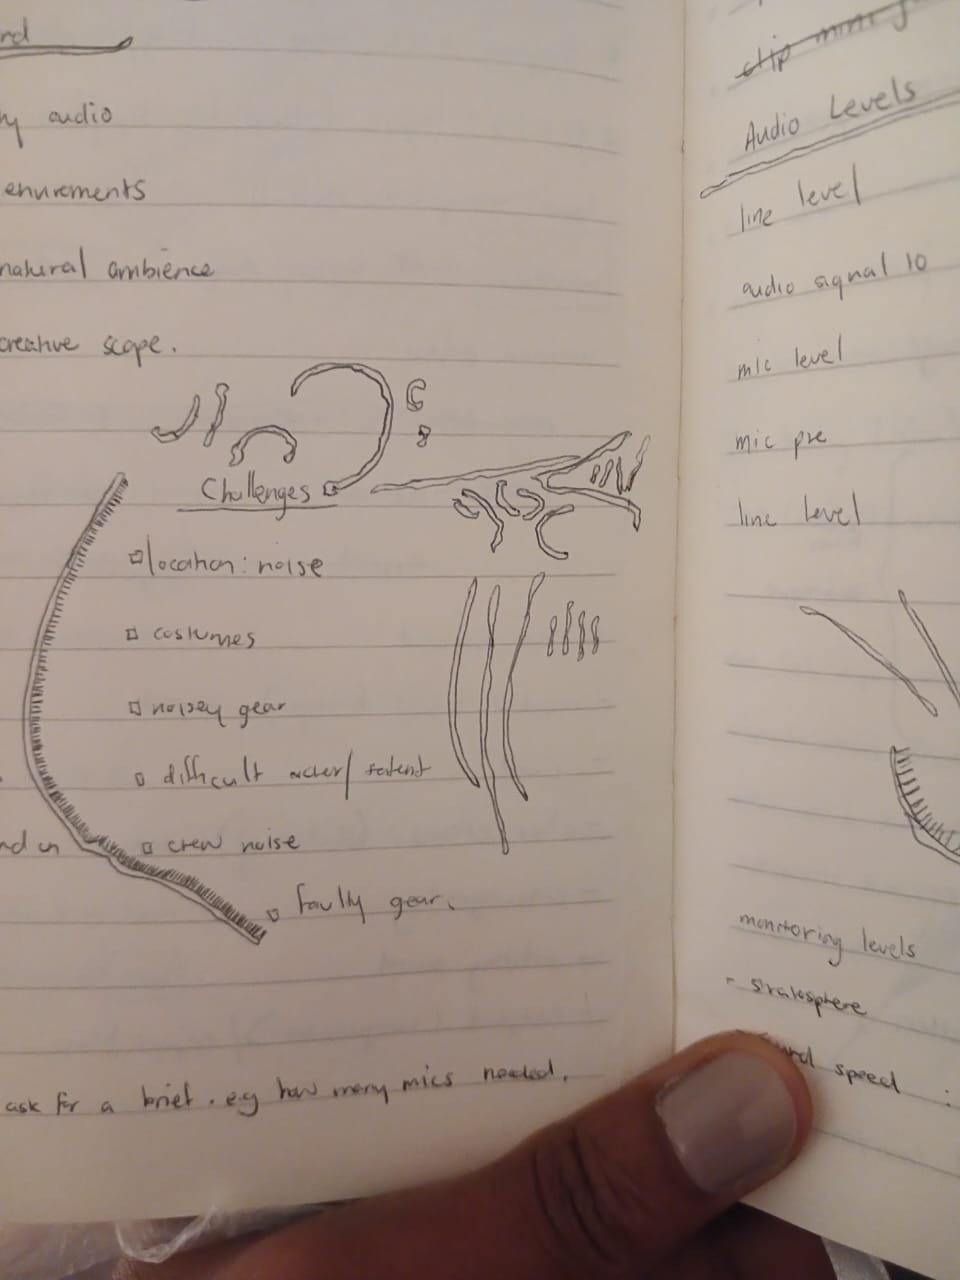 audio
envirements
natural ambience
creative scope.
Challenges
location: noise
costumes
noisey gear
difficult acter/talent
crew noise
faulty gear.
ask for a brief. e.g how many mics needed.
clip mini
Audio Levels
line level
audio signal 10
mic level
mic pre
line level
monitoring levels
speed :